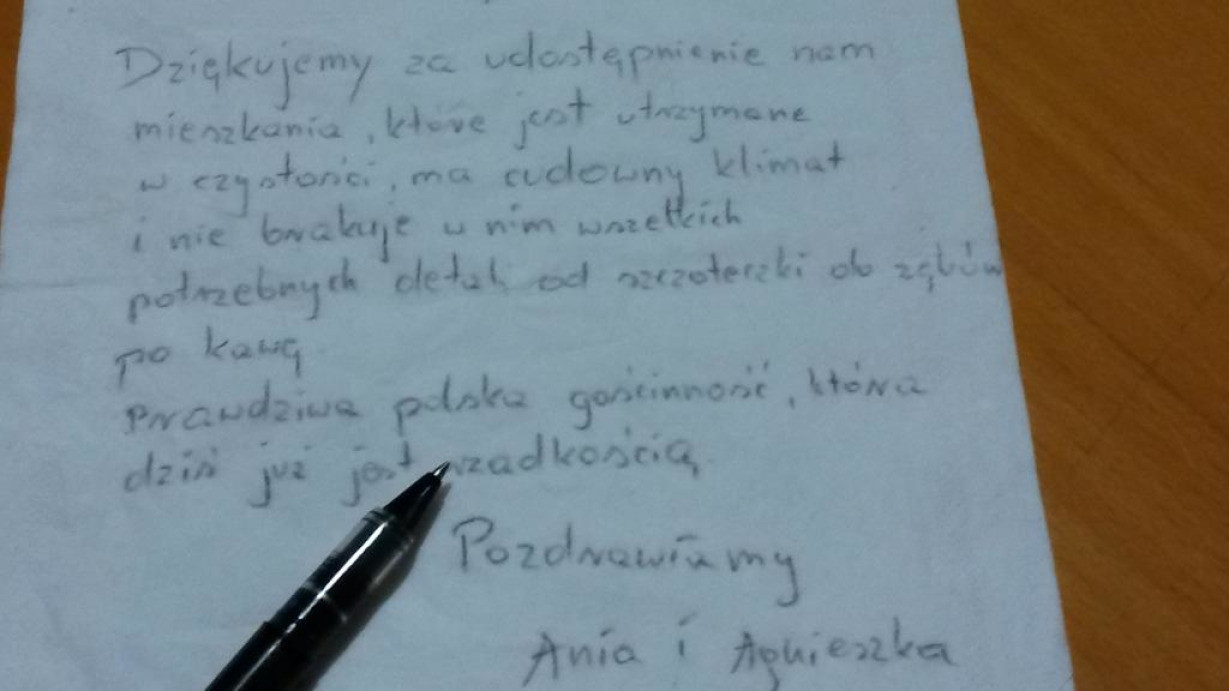 Dziękujemy za udostępnienie nam
mieszkania, które jest utrzymane
w czystości, ma cudowny klimat
i nie brakuje w nim wszelkich
potrzebnych detali od szczoteczki do zębów
po kawę
Prawdziwa polska gościnność, która
dziś już jest rzadkością.
Pozdrawiamy
Ania i Agnieszka